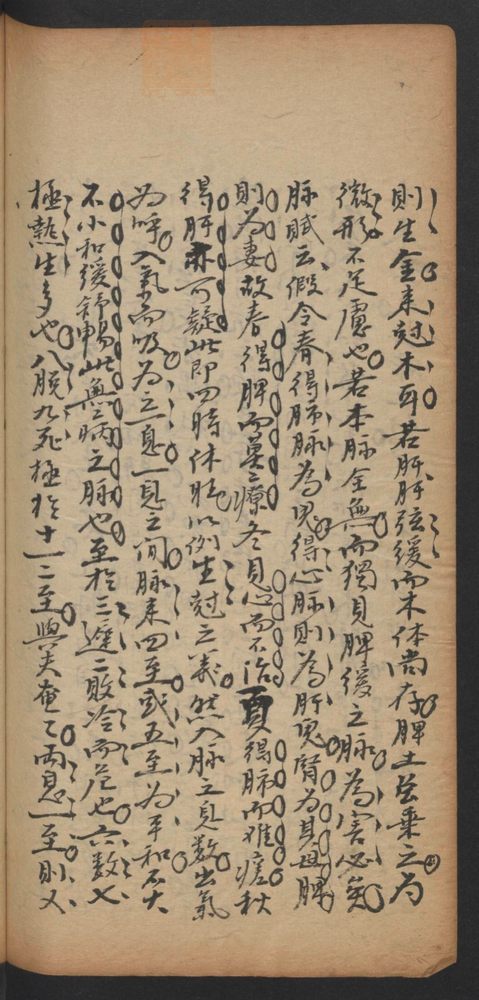 則生金来尅木耳若肝脉弦緩而木体尚存脾土兰乘之为
微形不足慮也若本脉全無而獨見脾緩之脉為害必矣
脉賦云假令春得肺脉為鬼得心脉則為肝児腎為其母脾
則為妻故春得脾而莫療冬見心而不治夏得肺而难瘥秋
得肝亦可疑此即四時休旺以例生尅之義然入脉之息数出氣
為呼入氣而吸為之息一息之间脉来四至或五至为平和不大
不小和緩舒暢此無病之脉也至於三遲二敗冷而危也六数七
極熱生多也八脱九死極於十一二至與夫奄〻两息一至則又